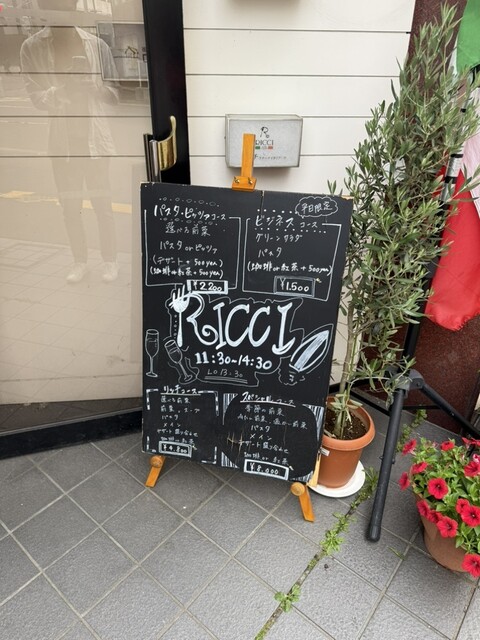 RICCI
パスタ・ピッツァコース
選べる前菜
パスタ or ピッツァ
(デザート + 500yen)
(珈琲 or 紅茶 + 500yen)
¥2.200
平日限定
ビジネスコース
グリーンサラダ
パスタ
(珈琲 or 紅茶 + 500yen)
¥1.500
RICCI
11:30-14:30
LO 13:30
リッチコース
選べる前菜
パスタ
メイン
珈琲 or 紅茶
¥4.800
コース
季節の前菜
パスタ
メイン
珈琲 or 紅茶
¥8.000